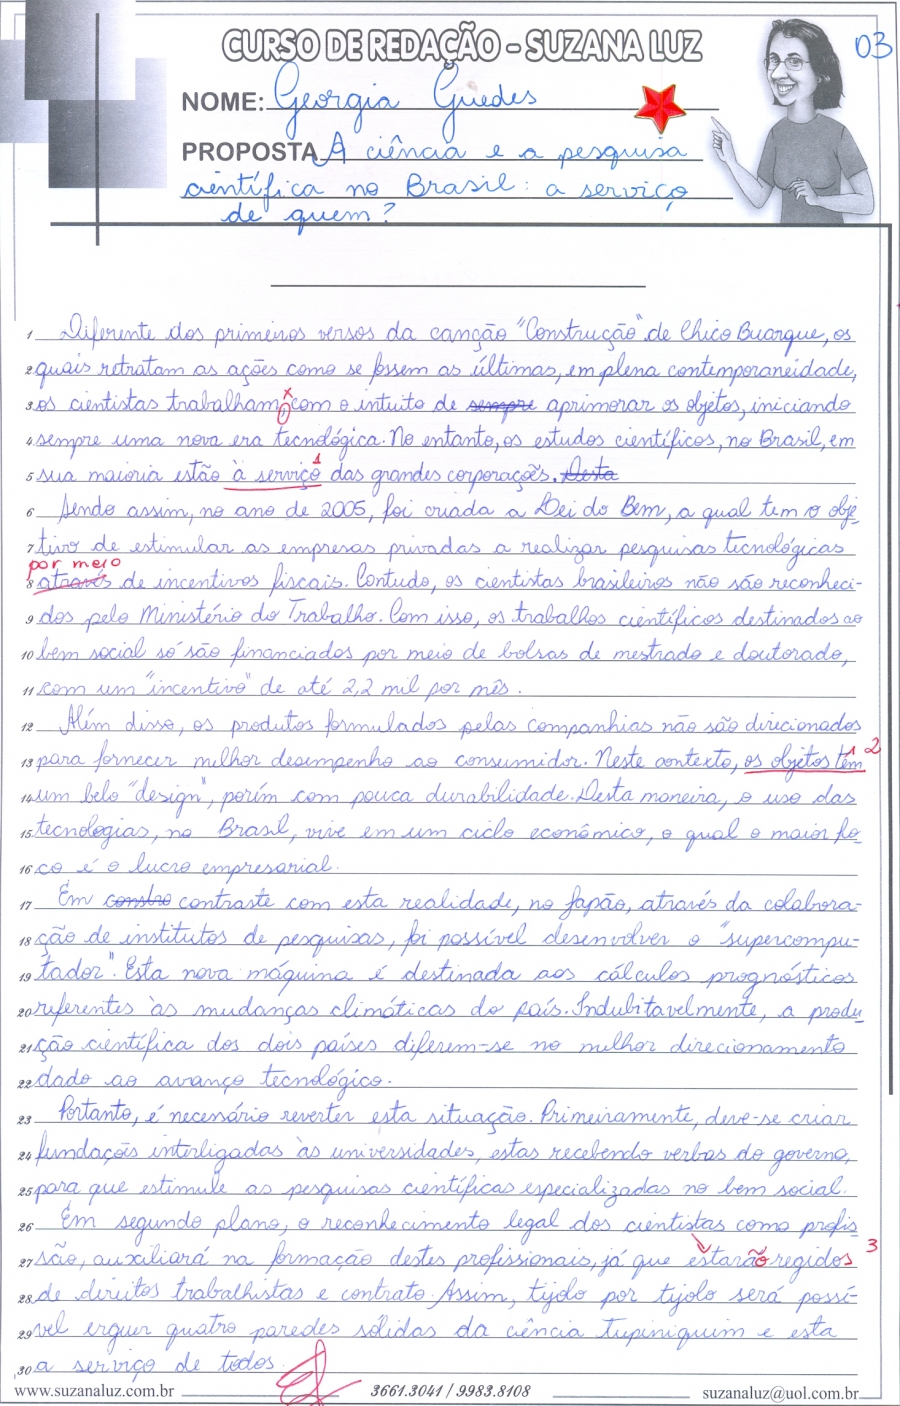 CURSO DE REDAÇÃO - SUZANA LUZ
03
NOME: Georgia Guedes
PROPOSTA A ciência e a pesquisa
científica no Brasil: a serviço
de quem?
1 Diferente dos primeiros versos da canção "Construção" de Chico Buarque, os
2 quais retratam as ações como se fossem as últimas, em plena contemporaneidade,
x
3 os cientistas trabalham, com o intuito de sempre aprimorar os objetos, iniciando
4 sempre uma nova era tecnológica. No entanto, os estudos científicos, no Brasil, em
1
5 sua maioria estão à serviço das grandes corporações. Desta
6 Sendo assim, no ano de 2005, foi criada a Lei do Bem, a qual tem o obje-
7 tivo de estimular as empresas privadas a realizar pesquisas tecnológicas
por meio
8 através de incentivos fiscais. Contudo, os cientistas brasileiros não são reconheci-
9 dos pelo Ministério do Trabalho. Com isso, os trabalhos científicos destinados ao
10 bem social só são financiados por meio de bolsas de mestrado e doutorado,
11 com um "incentivo" de até 2,2 mil por mês.
12 Além disso, os produtos formulados pelas companhias não são direcionados
13 para fornecer melhor desempenho ao consumidor. Neste contexto, os objetos têm 2
14 um belo "design", porém com pouca durabilidade. Desta maneira, o uso das
15 tecnologias, no Brasil, vive em um ciclo econômico, o qual o maior fo-
16 co é o lucro empresarial.
17 Em constro contraste com esta realidade, no Japão, através da colabora-
18 ção de institutos de pesquisas, foi possível desenvolver o "supercompu-
19 tador". Esta nova máquina é destinada aos cálculos prognósticos
20 referentes às mudanças climáticas do país. Indubitavelmente, a produ-
21 ção científica dos dois países diferem-se no melhor direcionamento
22 dado ao avanço tecnológico.
23 Portanto, é necessário reverter esta situação. Primeiramente, deve-se criar
24 fundações interligadas às universidades, estas recebendo verbas do governo,
25 para que estimule as pesquisas científicas especializadas no bem social.
26 Em segundo plano, o reconhecimento legal dos cientistas como profis
27 são, auxiliará na formação destes profissionais, já que estarão regidos 3
28 de direitos trabalhistas e contrato. Assim, tijolo por tijolo será possí-
29 vel erguer quatro paredes sólidas da ciência tupiniquim e esta
30 a serviço de todos.
www.suzanaluz.com.br 3661.3041 / 9983.8108 suzanaluz@uol.com.br